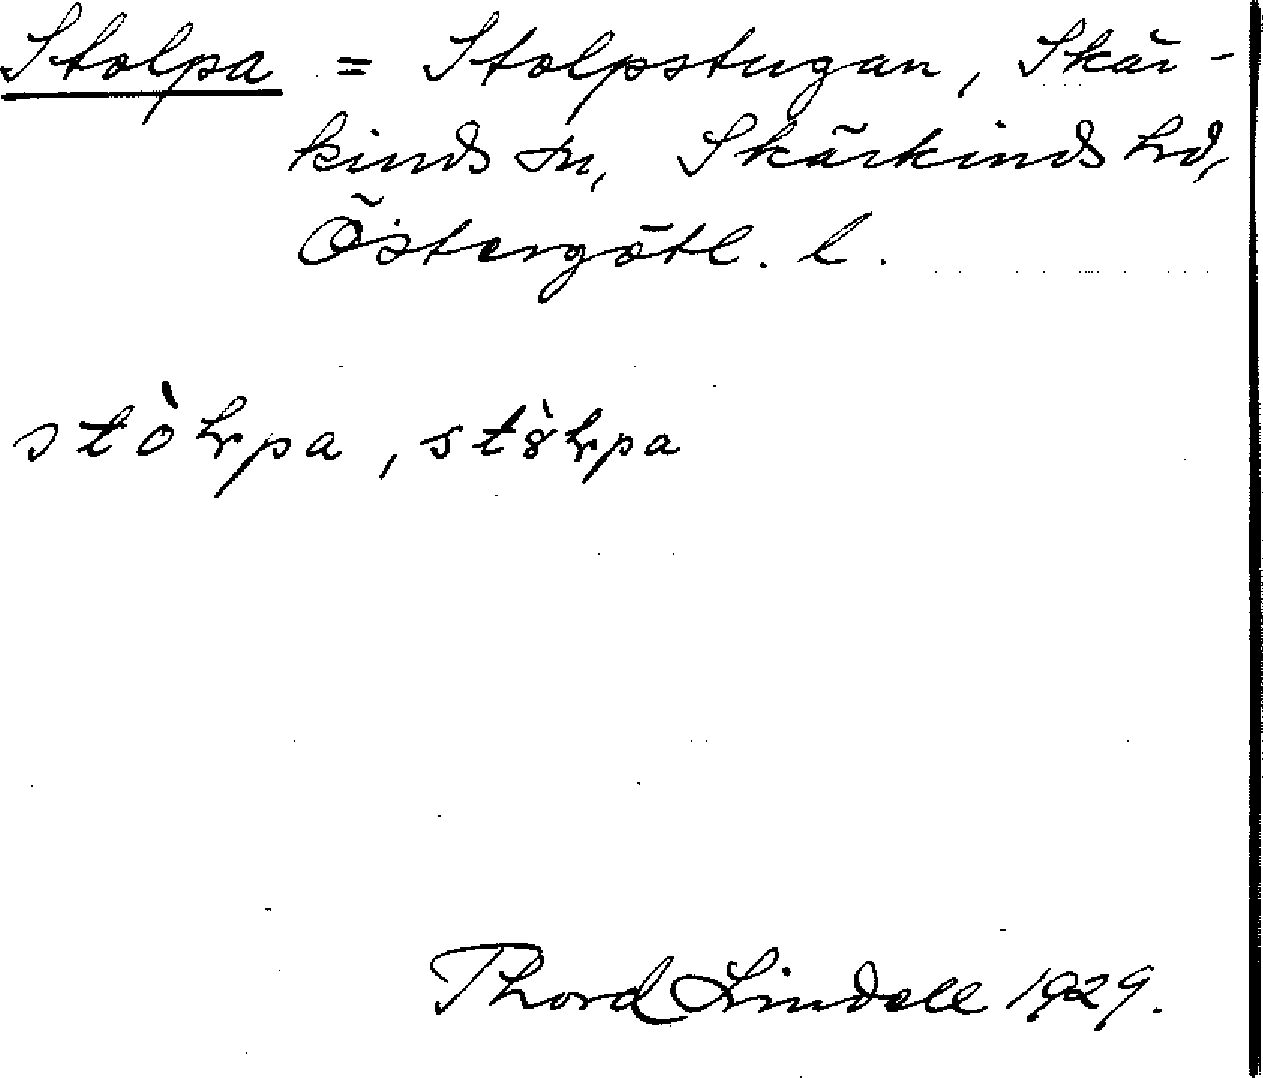 Stolpa = Stolpstugan, Skär-
kinds sn, Skärkinds hd,
Östergötl. l.
Thord Lindell 1929.